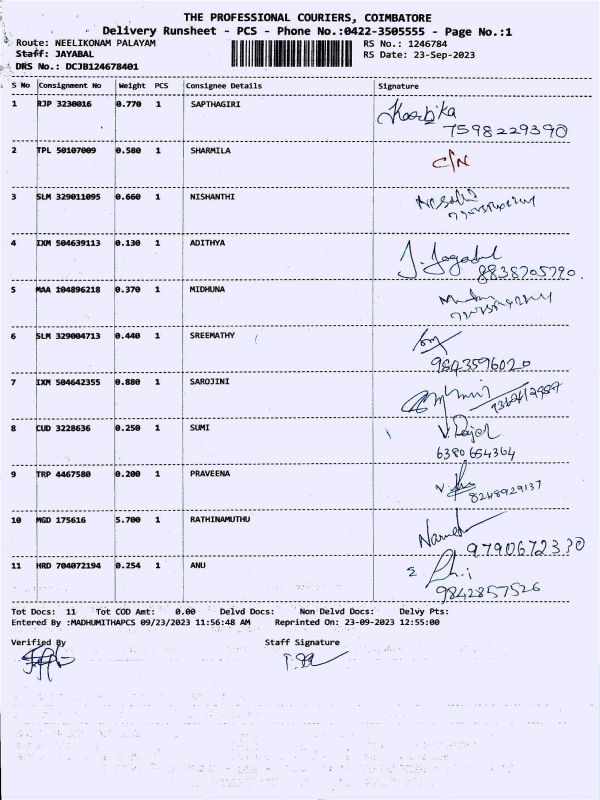 THE PROFESSIONAL COURIERS, COIMBATORE
Delivery Runsheet - PCS - Phone No.:0422-3505555 - Page No.:1
Route: NEELIKONAM PALAYAM RS No.: 1246784
Staff: JAYABAL RS Date: 23-Sep-2023
DRS No.: DCJB124678401
S No Consignment No Weight PCS Consignee Details Signature
1 RJP 3230016 0.770 1 SAPTHAGIRI
7598229390
2 TPL 50107009 0.580 1 SHARMILA C/N
3 SLM 329011095 0.660 1 NISHANTHI
4 IXM 504639113 0.130 1 ADITHYA
8838705790
5 MAA 104896218 0.370 1 MIDHUNA
6 SLM 329004713 0.440 1 SREEMATHY
9843596020
7 IXM 504642355 0.880 1 SAROJINI
8 CUD 3228636 0.250 1 SUMI
6380654364
9 TRP 4467580 0.200 1 PRAVEENA
8248929137
10 MGD 175616 5.700 1 RATHINAMUTHU
9790672330
11 HRD 704072194 0.254 1 ANU
9842857526
Tot Docs: 11 Tot COD Amt: 0.00 Delvd Docs: Non Delvd Docs: Delvy Pts:
Entered By :MADHUMITHAPCS 09/23/2023 11:56:48 AM Reprinted On: 23-09-2023 12:55:00
Verified By Staff Signature